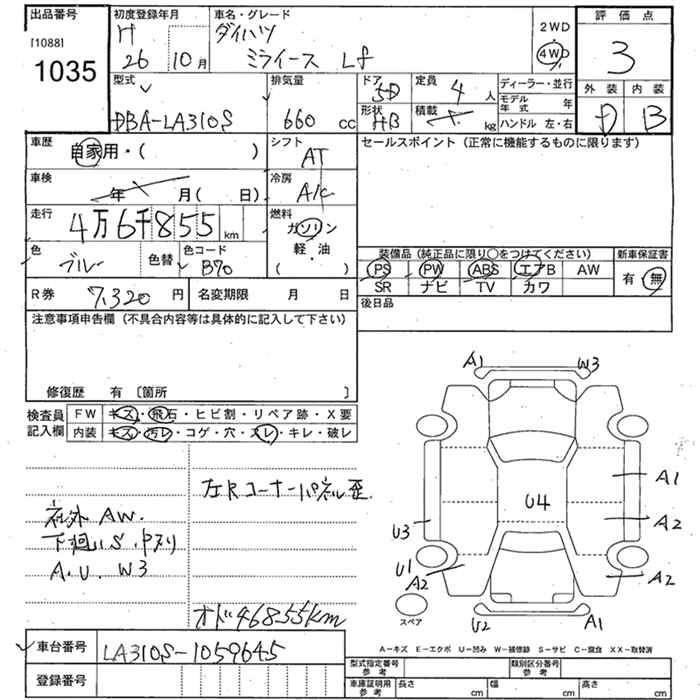 出品番号
[1088]
1035
初度登録年月
H
26 10月
車名・グレード
ダイハツ
ミライース Lf
2WD
4WD
評価点
3
外装 内装
D B
型式
DBA-LA310S
排気量
660 cc
ドア
5D
形状
HB
定員
4 人
積載
kg
ディーラー・並行
モデル年式 年
ハンドル 左・右
車歴
自家用・( )
シフト
AT
車検
年 月( 日)
冷房
A/C
走行
4万6千855 km
燃料
ガソリン
軽・油
( ・ )
色
ブルー
色替
色コード
B70
R券
7,320 円
名変期限 月 日
セールスポイント (正常に機能するものに限ります)
装備品 (純正品に限り○をつけてください)
PS PW ABS エアB AW
SR ナビ TV カワ
新車保証書
有・無
後日品
注意事項申告欄 (不具合内容等は具体的に記入して下さい)
修復歴 有 [箇所 ]
検査員記入欄
FW キズ・飛石・ヒビ割・リペア跡・X要
内装 キズ・汚レ・コゲ・穴・スレ・キレ・破レ
左Rコーナーパネル歪
社外 AW.
下廻りS・中サリ
A.U. W3
オド46855km
A1
W3
A1
U4
A2
U3
U1
A2
A2
スペア
U2
A1
車台番号
LA310S-1059645
登録番号
A−キズ E−エクボ U−凹み W−補修跡 S−サビ C−腐食 XX−取替済
型式指定番号 参考
類別区分番号 参考
車庫証明用 参考
長さ cm
幅 cm
高さ cm